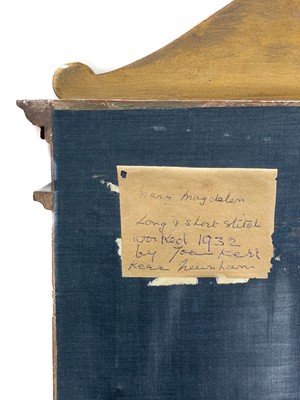 Mary Magdelen
Long & Short Stitch
worked 1932
by Joan Kerr
Kerr Newnham